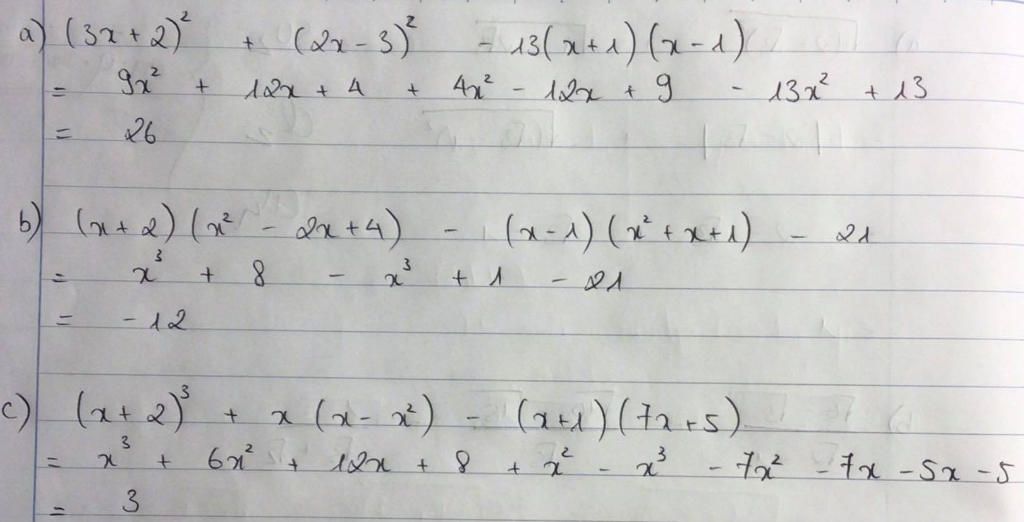 a) (3x + 2)² + (2x - 3)² - 13(x + 1)(x - 1)
= 9x² + 12x + 4 + 4x² - 12x + 9 - 13x² + 13
= 26
b) (x + 2)(x² - 2x + 4) - (x - 1)(x² + x + 1) - 21
= x³ + 8 - x³ + 1 - 21
= -12
c) (x + 2)³ + x(x - x²) - (x + 1)(7x + 5)
= x³ + 6x² + 12x + 8 + x² - x³ - 7x² - 7x - 5x - 5
= 3